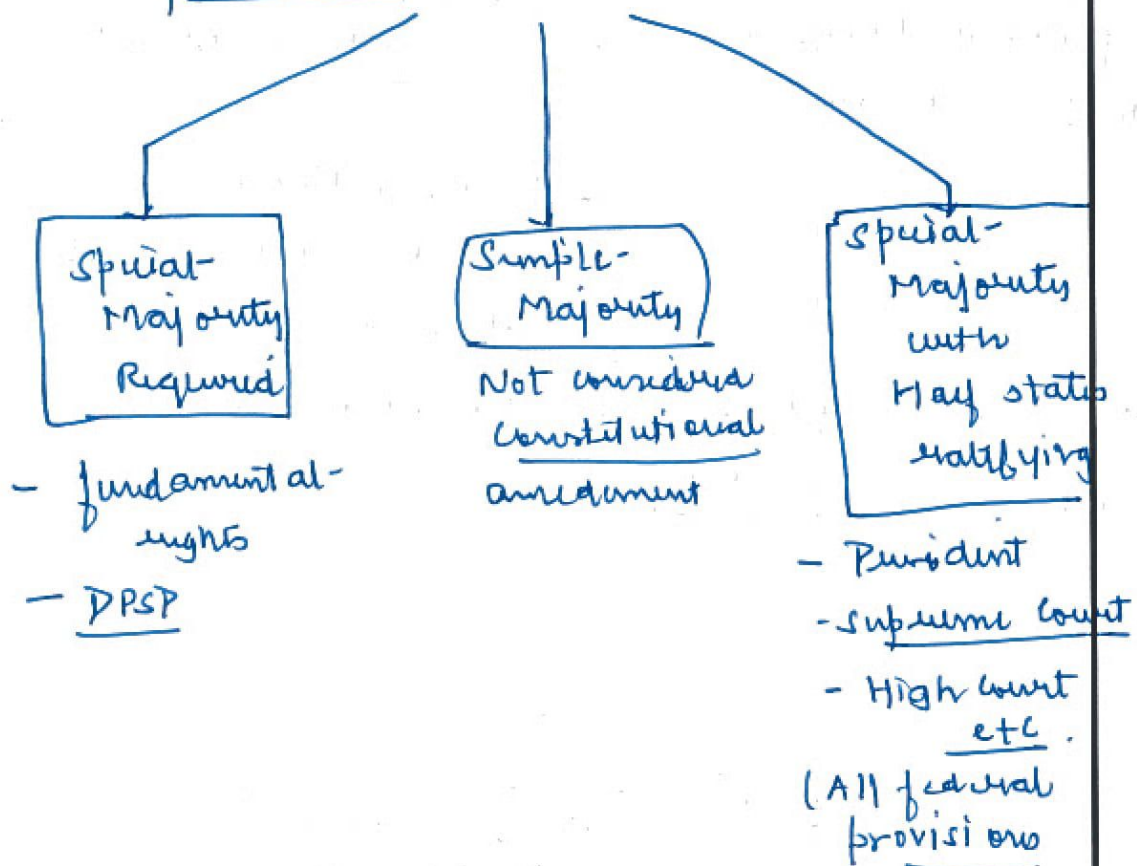 Special-
Majority
Required
- fundamental-
rights
- DPSP
Simple-
Majority
Not considered
Constitutional
amedment
Special-
Majority
with
Half states
ratifying
- President
- Supreme Court
- High Court
etc.
(All federal
provisions